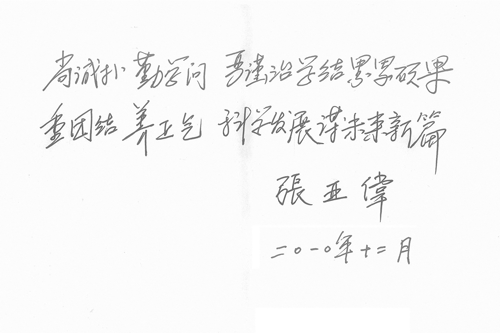 尚诚朴 勤学问 严谨治学结累累硕果
重团结 养正气 科学发展谋未来新篇
張亚偉
二〇一〇年十二月